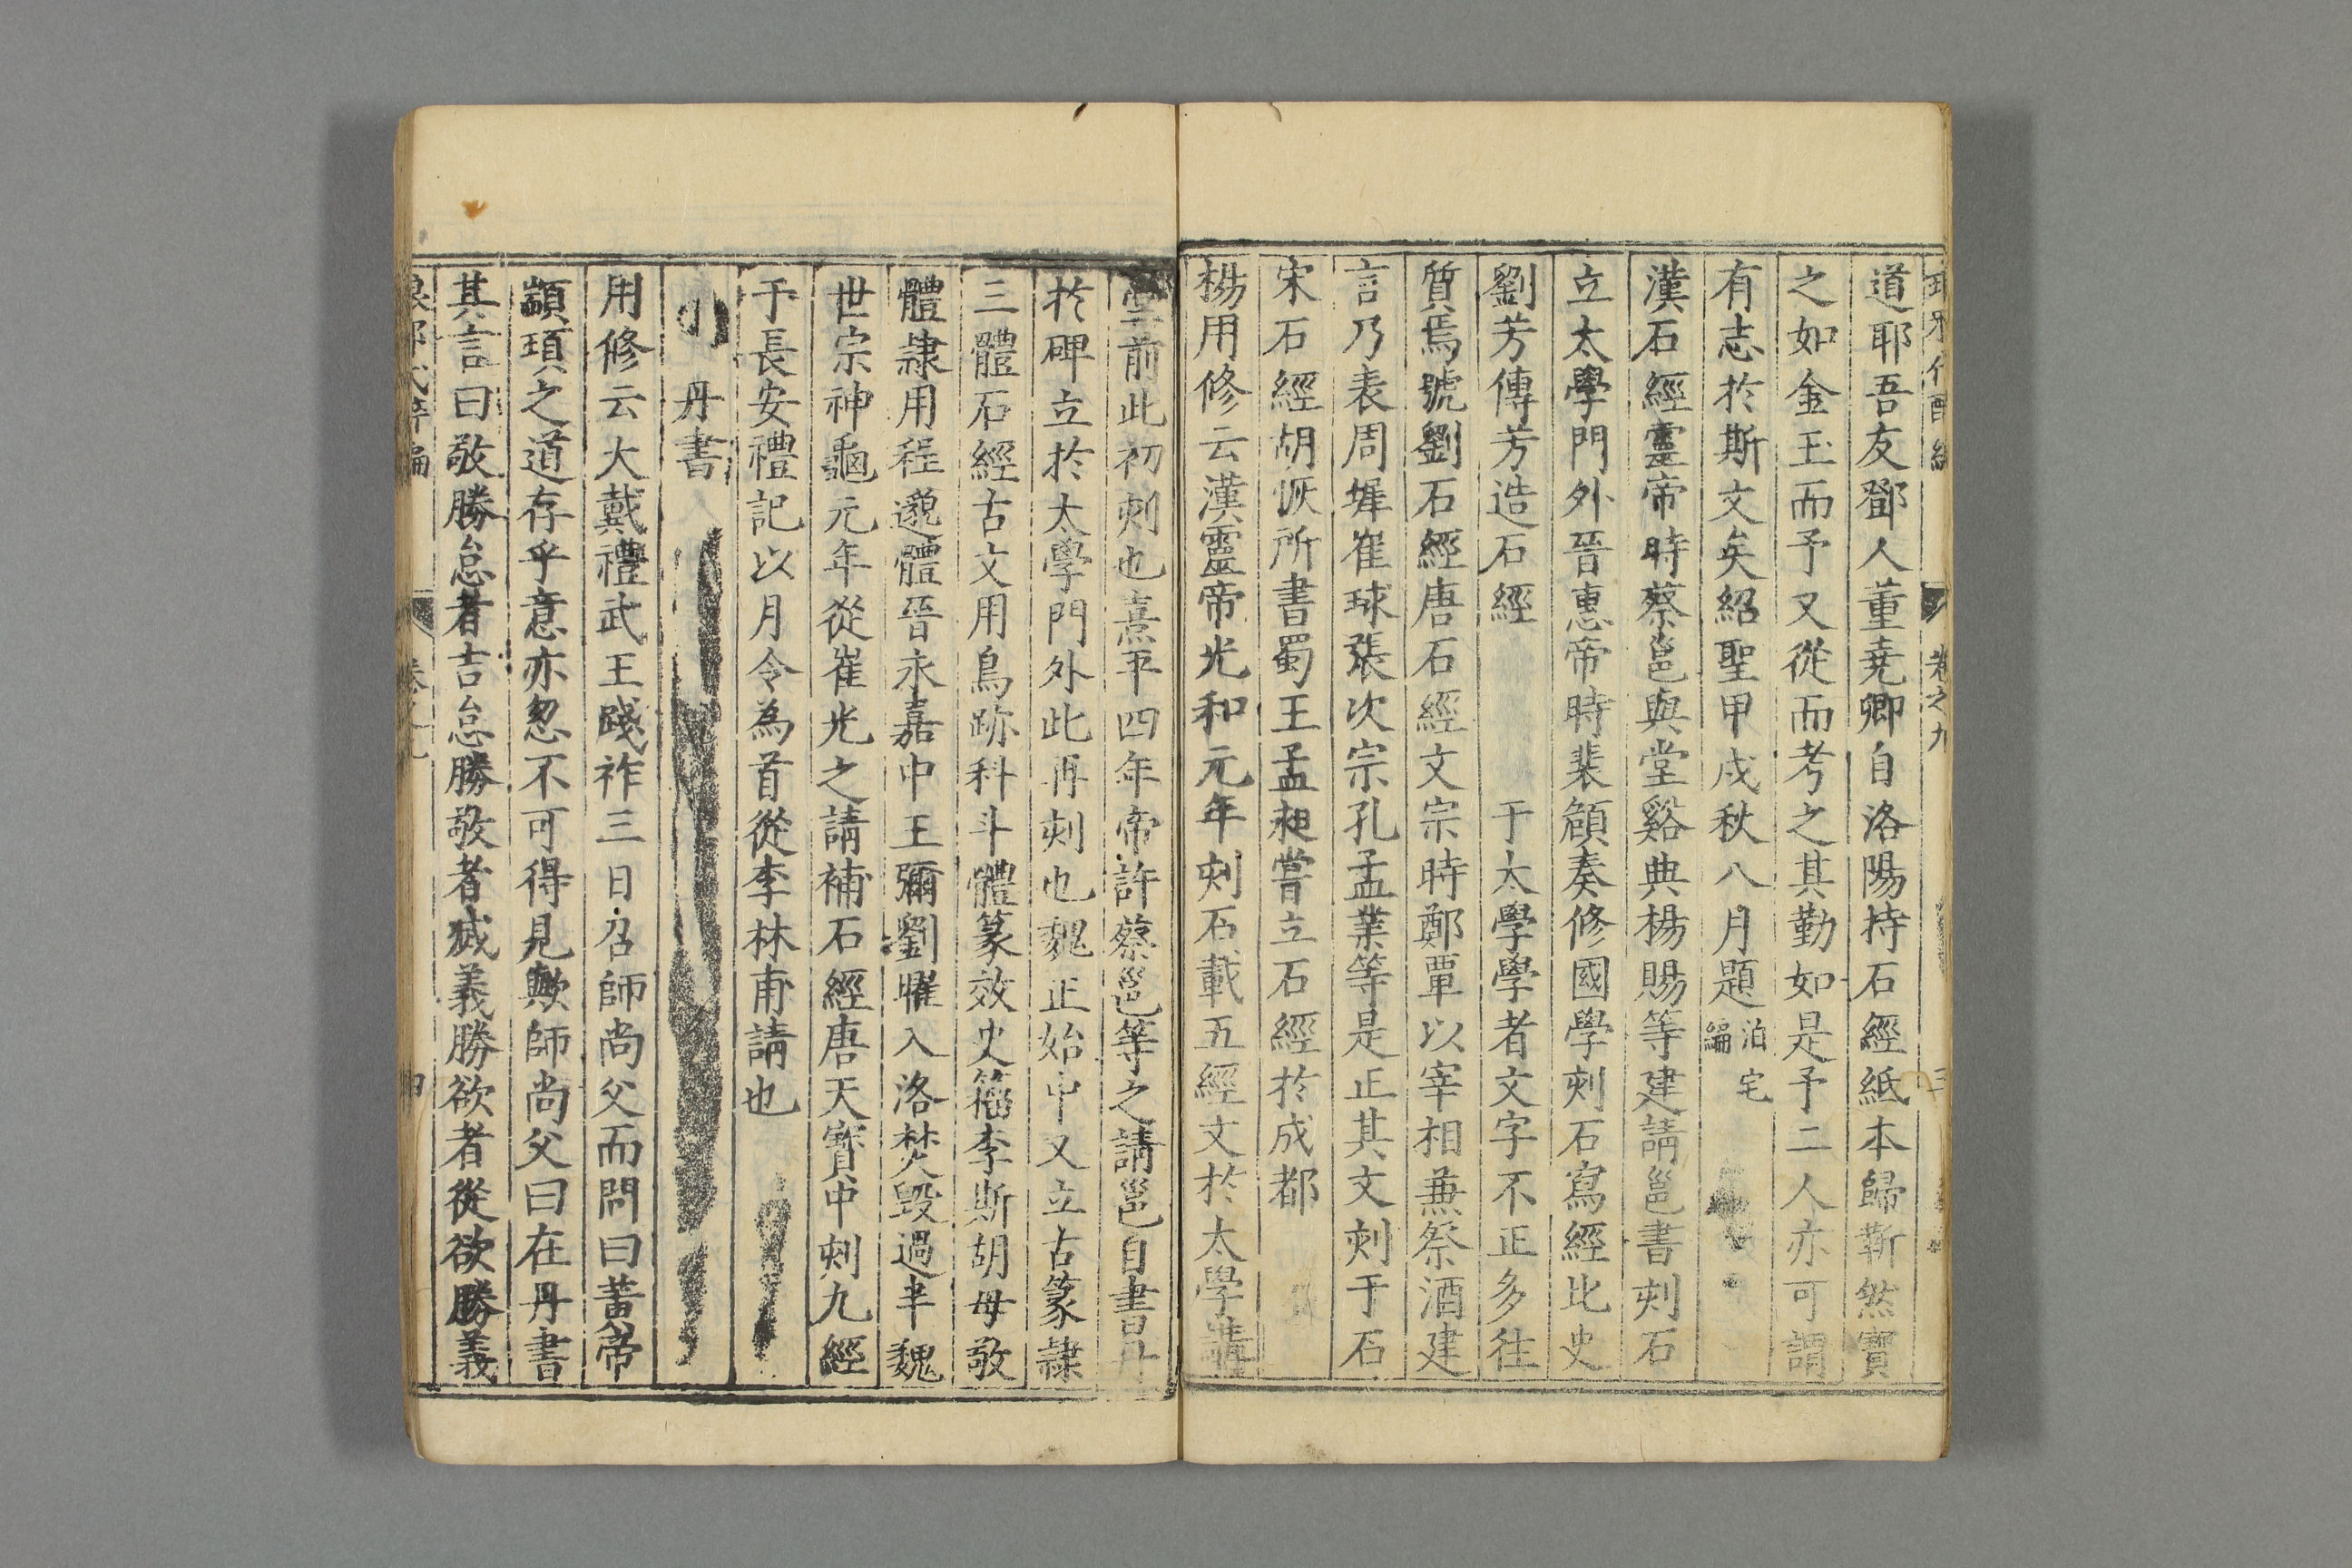 卷之九
道耶吾友鄧人董堯卿自洛陽持石經紙本歸靳然寶
之如金玉而予又從而考之其勤如是予二人亦可謂
有志於斯文矣紹聖甲戌秋八月題泊宅編
漢石經靈帝時蔡邕與堂谿典楊賜等建請邕書刻石
立太學門外晉惠帝時裴頠奏修國學刻石寫經比史
劉芳傳芳造石經于太學學者文字不正多往
質焉號劉石經唐石經文宗時鄭覃以宰相兼祭酒建
言乃表周墀崔球張次宗孔孟業等是正其文刻于石
宋石經胡恢所書蜀王孟昶嘗立石經於成都
楊用修云漢靈帝光和元年刻石載五經文於太學講
堂前此初刻也熹平四年帝許蔡邕等之請邕自書丹
於碑立於太學門外此再刻也魏正始中又立古篆隸
三體石經古文用鳥跡科斗體篆效史籀李斯胡母敬
體隸用程邈體晉永嘉中王彌劉曜入洛焚毀過半魏
世宗神龜元年從崔光之請補石經唐天寶中刻九經
于長安禮記以月令為首從李林甫請也
丹書
用修云大戴禮武王踐祚三日召師尚父而問曰黃帝
顓頊之道存乎意亦忽不可得見歟師尚父曰在丹書
其言曰敬勝怠者吉怠勝敬者滅義勝欲者從欲勝義